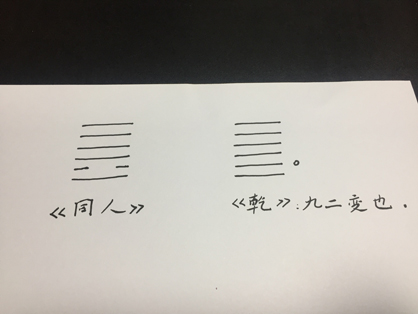 《同人》
《乾》:九二变也.